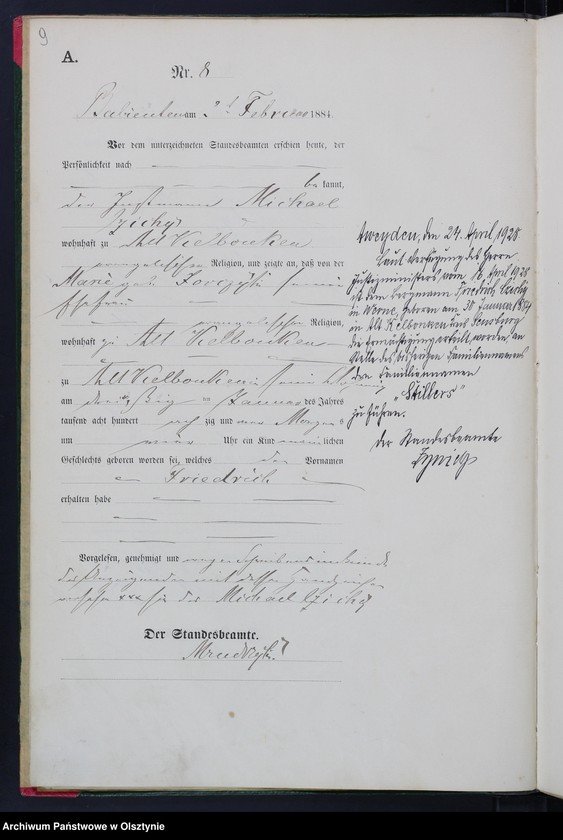 9
A.
Nr. 8
Babienten am 2t Februar 1884
Vor dem unterzeichneten Standesbeamten erschien heute, der
Persönlichkeit nach
be kannt,
der Instmann Michael
Czichy
wohnhaft zu Alt Kielbonken
evangelischer Religion, und zeigte an, daß von der
Marie geb. seiner
Ehefrau
evangelischer Religion,
wohnhaft zu Alt Kielbonken
zu Alt Kielbonken in seiner Wohnung
am dreißig Januar des Jahres
tausend acht hundert acht zig und vier Morgens
um Uhr ein Kind männlichen
Geschlechts geboren worden sei, welches den Vornamen
Friedrich
erhalten habe
Vorgelesen, genehmigt und wegen Schreibensunkunde
des Anzeigenden mit dessen Handzeichen
versehen xxx für den Michael Czichy
Der Standesbeamte.
Aweyden, den 24. April 1928.
Laut Verfügung des Herrn
Justizministers vom April 1928
ist dem Bergmann Friedrich Czichy
in Werne, geboren am 30 Januar 1884
in Alt Kielbonken Kreis Sensburg
die Ermächtigung erteilt worden, an
Stelle des bisherigen Familiennamens
den Familiennamen
"Stillers"
zu führen.
Der Standesbeamte
Archiwum Państwowe w Olsztynie